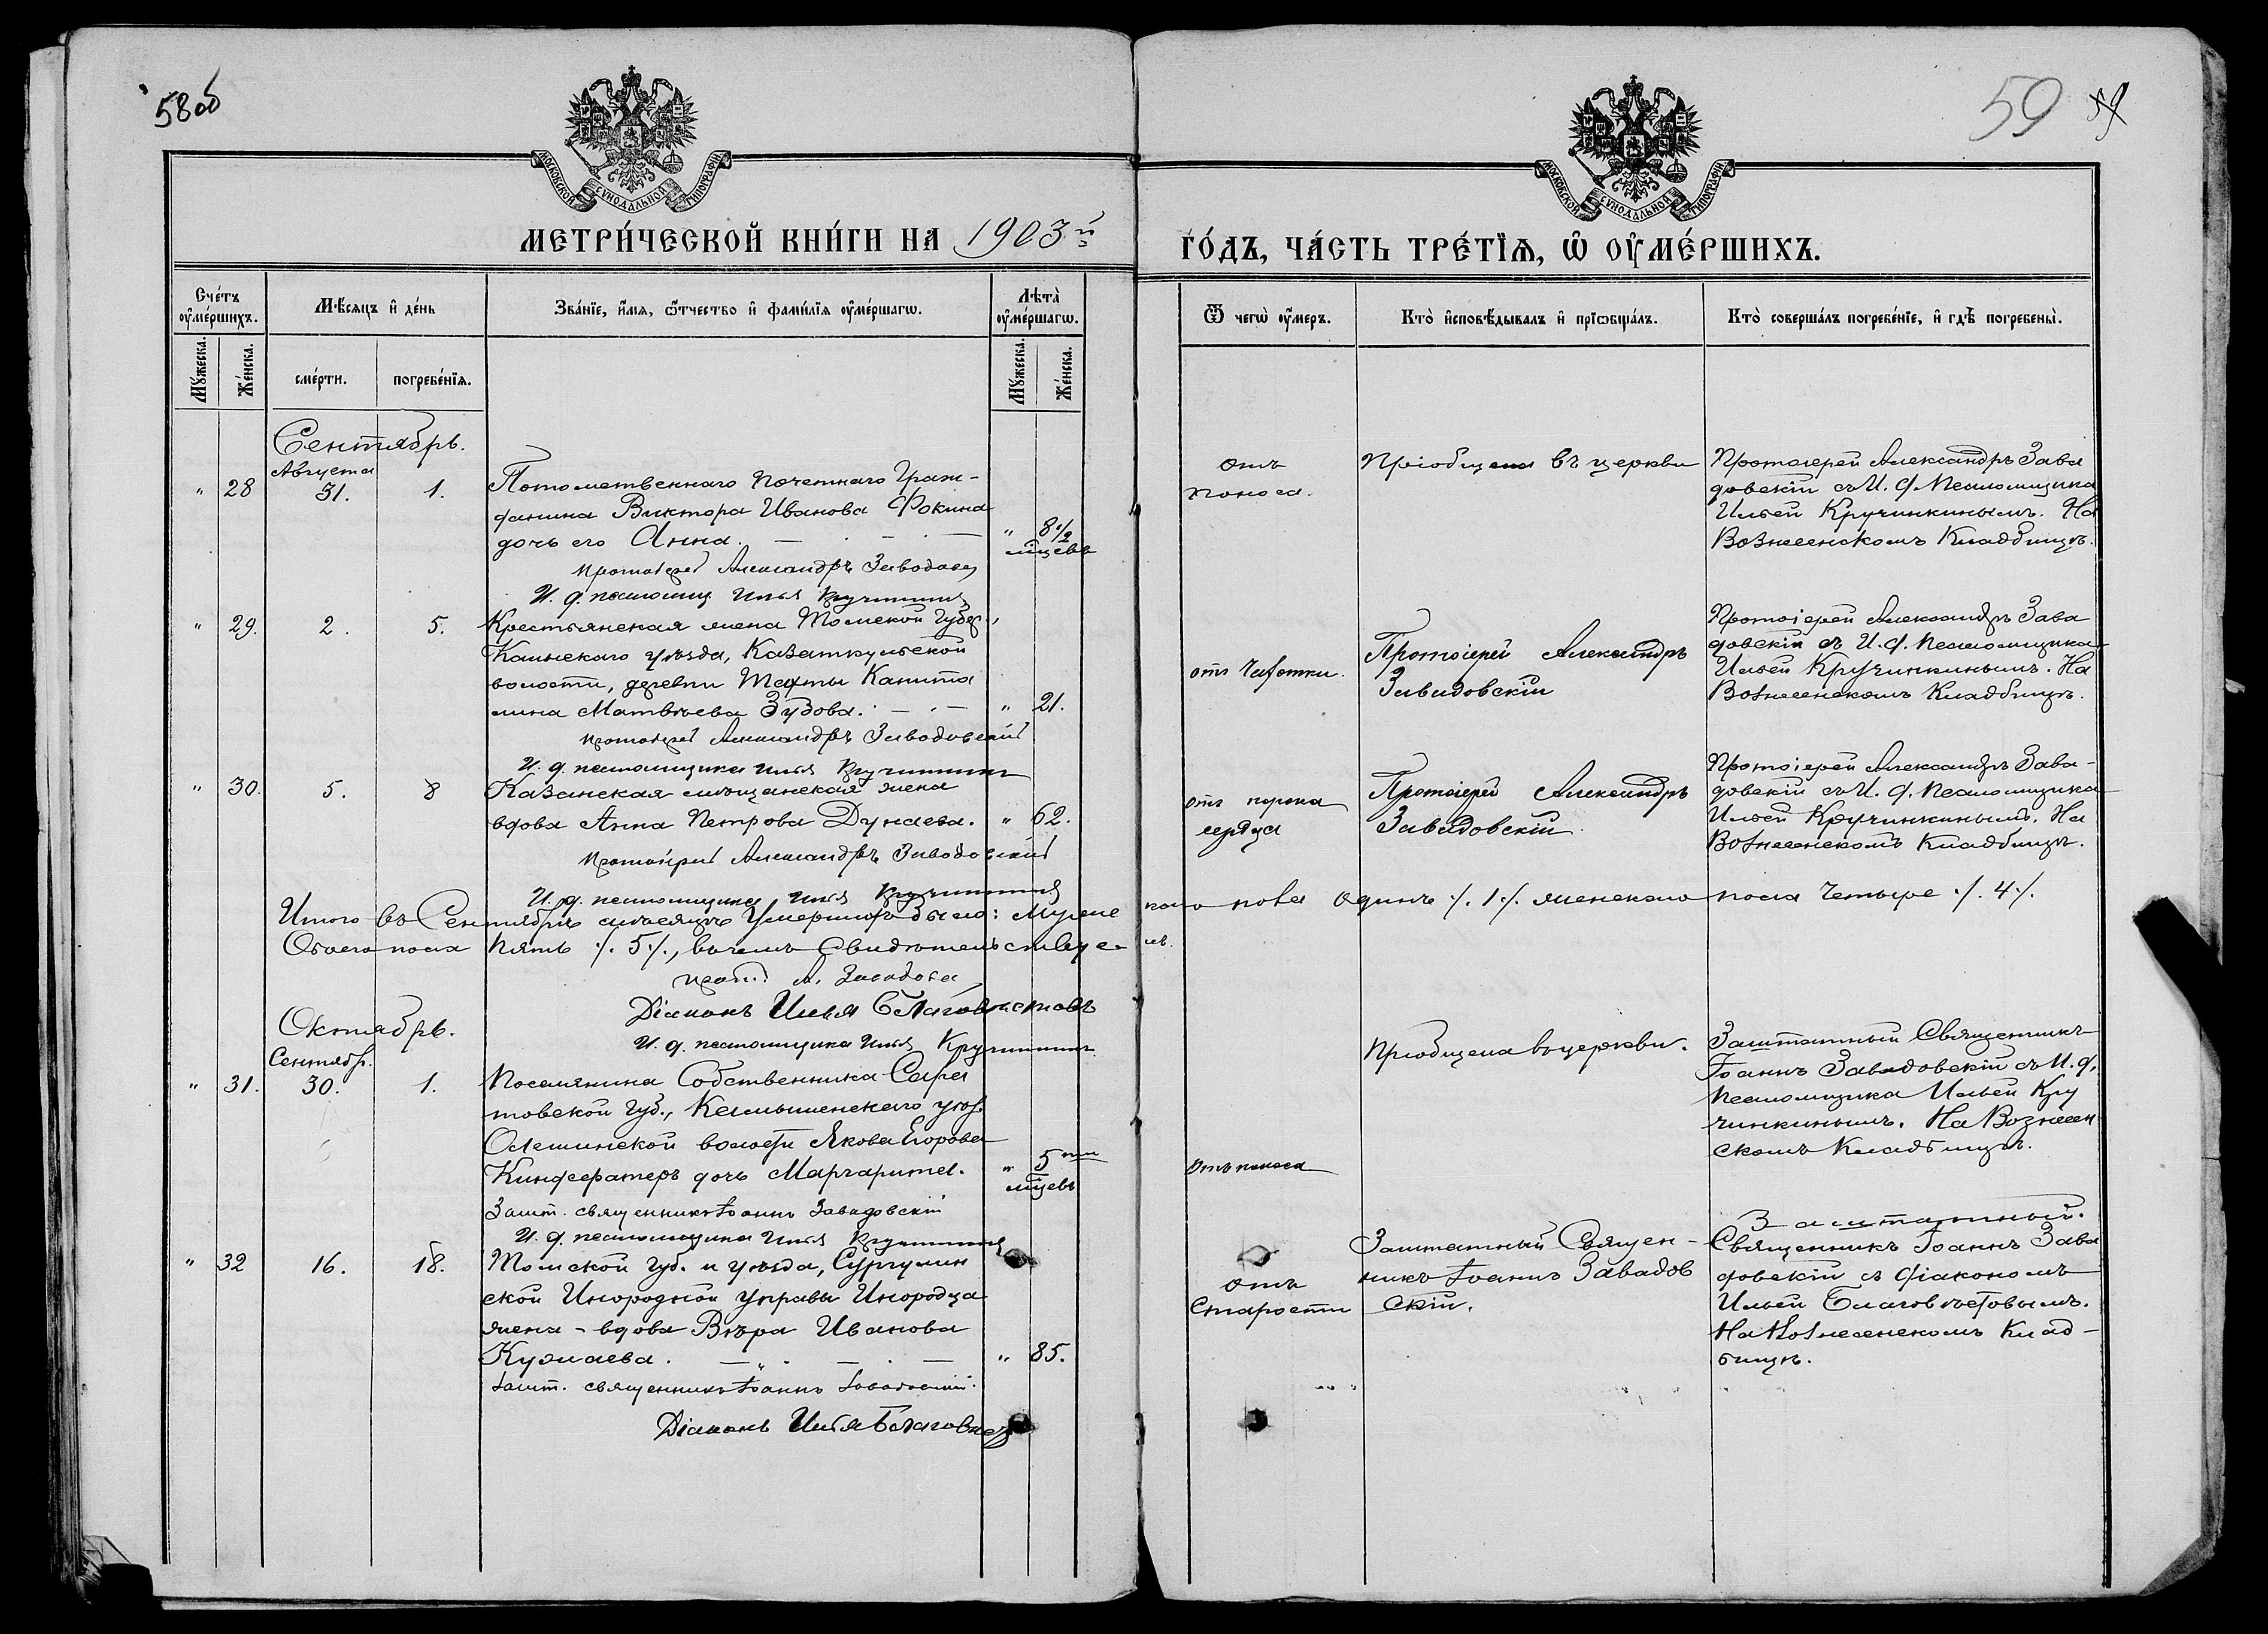 58 об
59
59
МОСКОВСКОЙ СѴНОДАЛЬНОЙ ТИПОГРАФІИ
МОСКОВСКОЙ СѴНОДАЛЬНОЙ ТИПОГРАФІИ
МЕТРИ́ЧЕСКОЙ КНИ́ГИ НА 1903й
ГО́ДЪ, ЧА́СТЬ ТРЕ́ТЇѦ, Ѡ ОУМЕ́РШИХЪ.
Сче́тъ оуме́ршихъ.
Мꙋ́жеска.
Же́нска.
Мѣ́сяцъ и де́нь
сме́рти.
погребе́нїѧ.
Зва́нїе, и́мѧ, ѿтчество и фами́лїѧ оуме́ршагѡ.
Лѣта̀ оуме́ршагѡ.
Мꙋ́жеска.
Же́нска.
Ѿ чегѡ̀ оу́меръ.
Кто̀ исповѣ́дывалъ и прїѡбща́лъ.
Кто̀ соверша́лъ погребе́нїе, и гдѣ̀ погребены̀.
Сентябрь.
Августа
" 28 31. 1.
Потомственнаго почетнаго Граж-
данина Виктора Иванова Фокина
дочь его Анна.
" 8 1/2
мѣцевъ
Протоіерей Александръ Заводовс
И. д. псаломщ Илья Кручинкинъ
отъ
поноса.
Пріобщена въ церкви
Протоіерей Александръ Зава
довскій съ И. д. Псаломщика
Ильей Кручинкинымъ. На
Вознесенскомъ Кладбищѣ.
" 29. 2. 5.
Крестьянская жена Томской Губер.,
Каинскаго уѣзда, Казаткульской
волости, деревни Тахты Капито
лина Матвѣева Зубова.
" 21.
Протоіерей Александръ Заводовскій
И. д. псаломщика Илья Кручинкинъ
отъ Чахотки.
Протоіерей Александръ
Завадовскій
Протоіерей Александръ Зава
довскій съ И. д. псаломщика
Ильей Кручинкинымъ. На
Вознесенскомъ Кладбищѣ.
" 30. 5. 8
Казанская мѣщанская жена
вдова Анна Петрова Дунаева.
" 62.
Протоіерей Александръ Заводовскій
И. д. псаломщика Илья Кручинкинъ
отъ порока
сердца
Протоіерей Александръ
Завадовскій
Протоіерей Александръ Зава-
довскій съ И. д. Псаломщика
Ильей Кручинкинымъ. На
Вознесенскомъ Кладбищѣ.
Итого въ Сентябрѣ мѣсяцѣ Умершихъ было: Мужескаго пола Одинъ ./. 1 ./. женскаго пола Четыре ./. 4 ./.
Обоего пола Пять ./. 5 ./., въ чемъ Свидѣтельствуемъ.
прот. А. Завадовс
Діаконъ Илья Благовѣстовъ
И. д. псаломщика Илья Кручинкинъ
Октябрь.
Сентябр.
" 31. 30. 1.
Поселянина Собственника Сара
товской Губ., Камышинскаго уѣз.
Олешинской волости Якова Егорова
дочь Маргарита.
" 5ти
мѣцевъ
Зашт. священникъ Іоаннъ Завадовскій
И. д. псаломщика Илья Кручинкинъ
Отъ поноса
Пріобщена въ церкви.
Заштатный Священникъ
Іоаннъ Завадовскій съ И. д.
Псаломщика Ильей Кру
чинкинымъ. На Вознесен
скомъ Кладбищѣ.
" 32 16. 18.
Томской Губ. и уѣзда,
ской Инородной управы Инородца
жена - вдова Вѣра Иванова
" 85.
Зашт. священникъ Іоаннъ Завадовскій.
Діаконъ Илья Благовѣс
отъ
Старости
Заштатный Священ-
никъ Іоаннъ Завадов
скій.
Заштатный.
Священникъ Іоаннъ Зава
довскій съ діакономъ
Ильей Благовѣстовымъ.
На Вознесенскомъ Клад-
бищѣ.